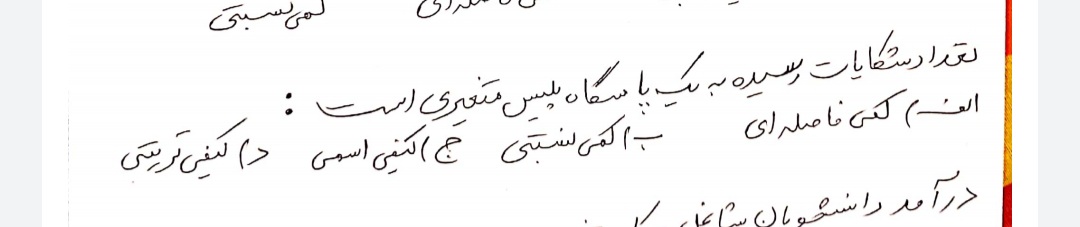 کمی نسبتی
تعداد شکایات رسیده به یک پاسگاه پلیس متغیری است :
الف) کمی فاصله ای ب) کمی نسبتی ج) کیفی اسمی د) کیفی ترتیبی
درآمد دانشجویان شاغل